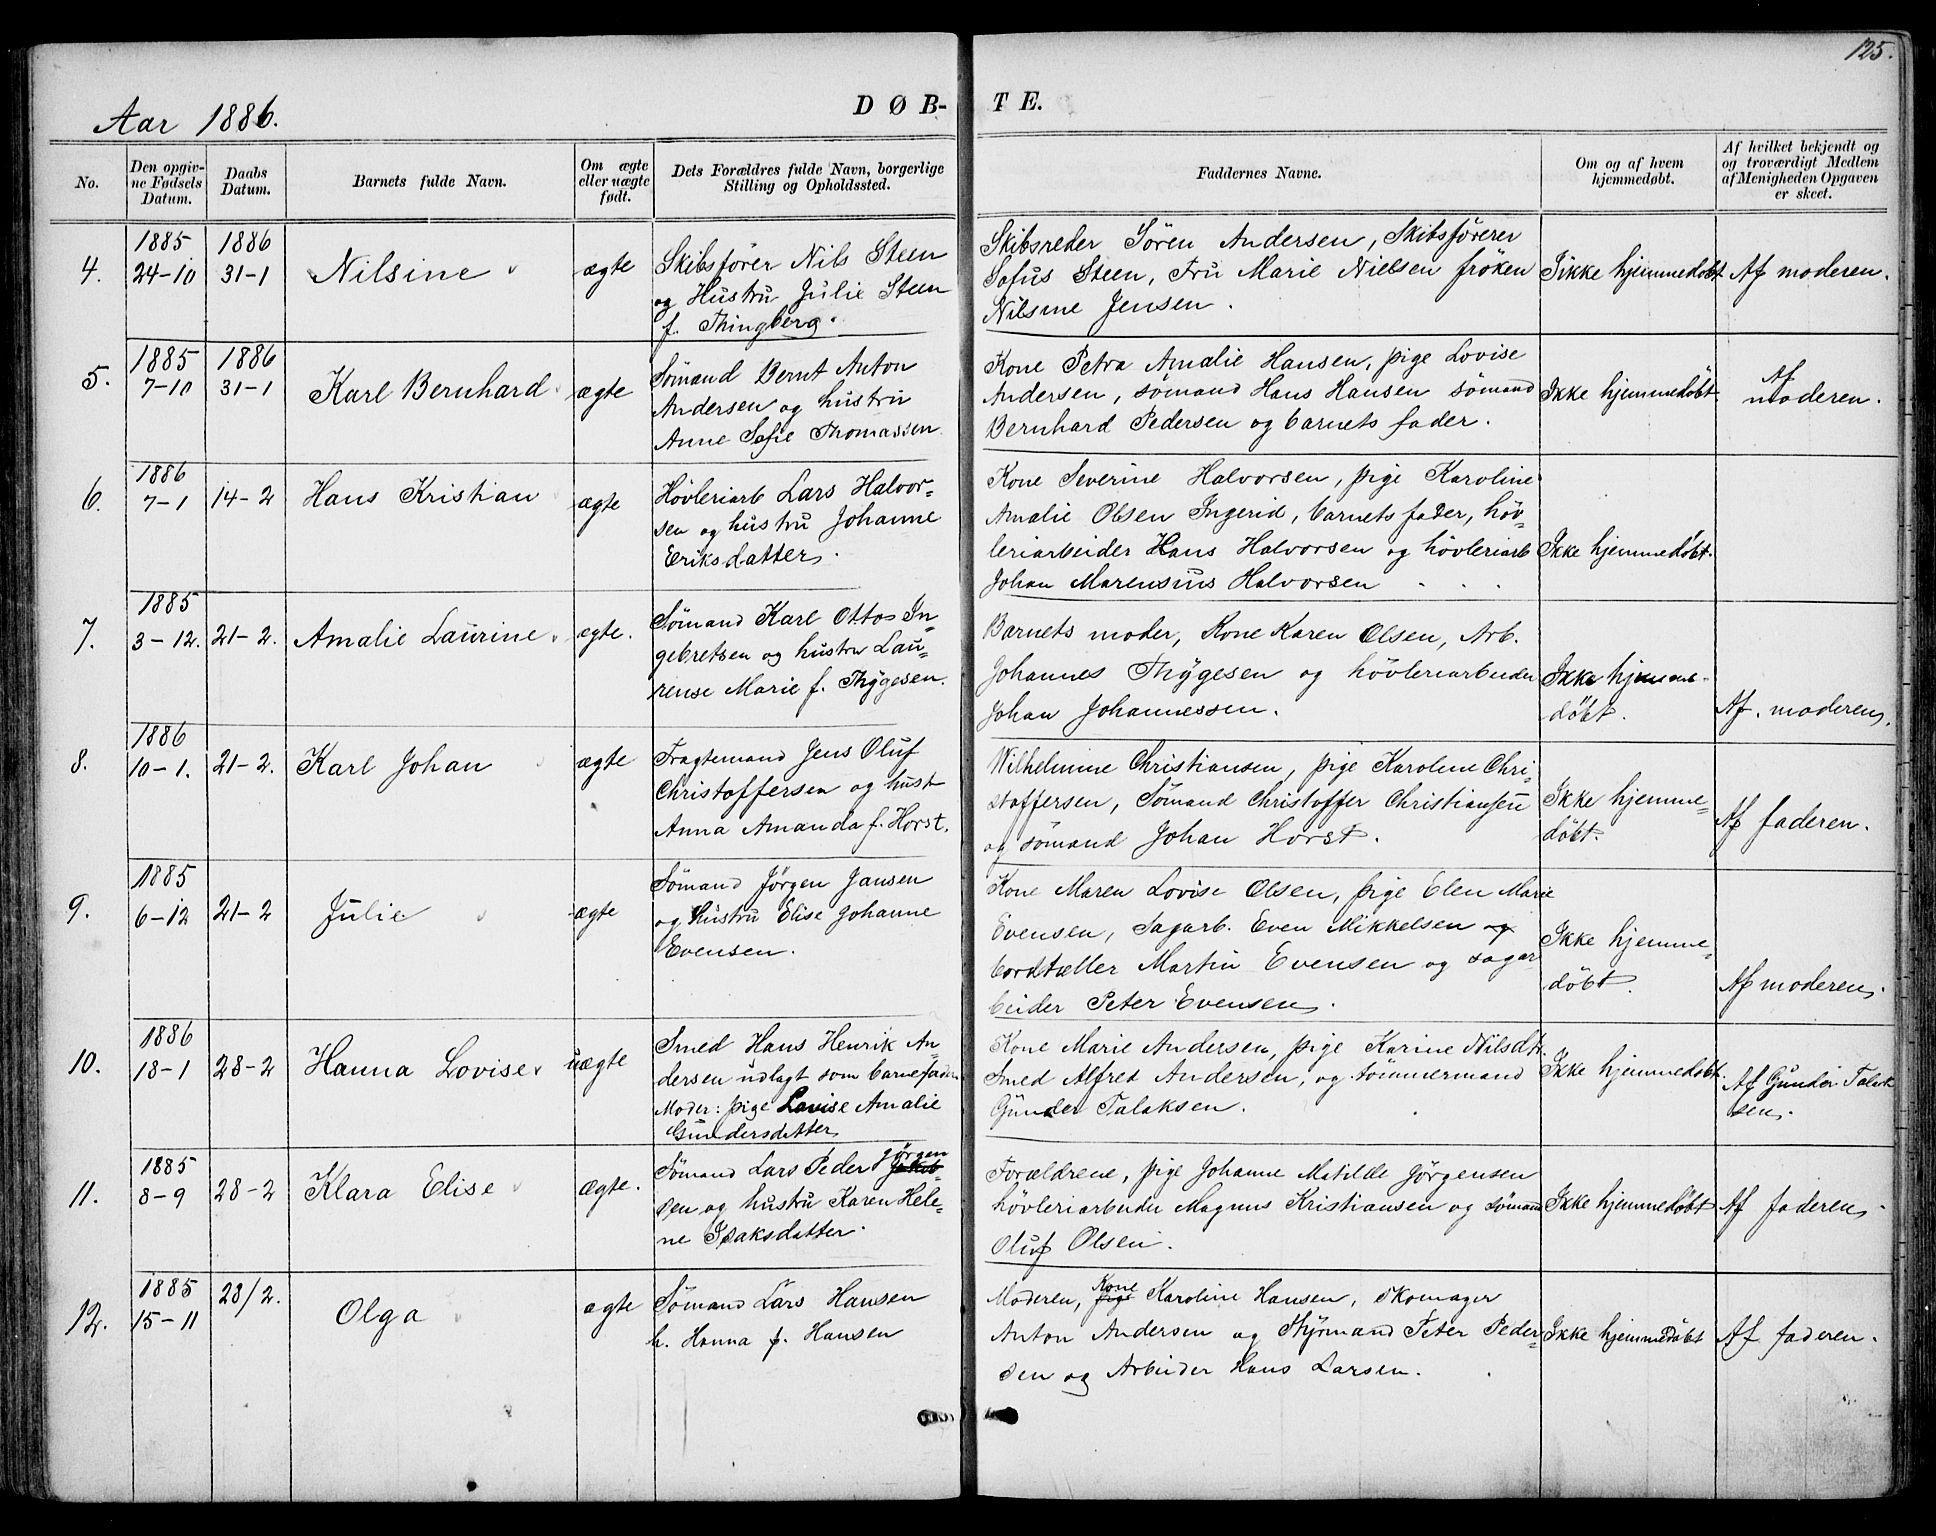 125.
Aar 1886.
DØB-
TE.
No.
Den opgiv-
ne Fødsels
Datum.
Daabs
Datum.
Barnets fulde Navn.
Om ægte
eller uægte
født.
Dets Forældres fulde Navn, borgerlige
Stilling og Opholdssted.
Faddernes Navne.
Om og af hvem
hjemmedøbt.
Af hvilket bekjendt og
og troværdigt Medlem
af Menigheden Opgaven
er skeet.
4.
1885
24-10
1886
31-1
Nilsine
ægte
Skibsfører Nils Steen
og Hustru Julie Steen
f. Thingberg.
Skibsreder Sören Andersen, Skibsförerer
Sofus Steen, Fru Marie Nielsen fröken
Nilsine Jensen.
Ikke hjemmedøbt
Af moderen.
5.
1885
7-10
1886
31-1
Karl Bernhard
ægte
Sömand Bernt Anton
Andersen og hustru
Anne Sofie Thomassen
Kone Petra Amalie Hansen, pige Lovise
Andersen, sömand Hans Hansen sömand
Bernhard Pedersen og barnets fader.
Ikke hjemmedøbt
Af
moderen.
6.
1886
7-1
14-2
Hans Kristian
ægte
Hövleriarb Lars Halvor-
sen og hustru Johanne
Eriksdatter.
Kone Severine Halvorsen, pige Karoline
Amalie Olsen Ingerid, barnets fader, höv-
leriarbeider Hans Halvorsen og hövleriarb
Johan Marensius Halvorsen
Ikke hjemmedøbt.
7.
1885
3-12.
21-2.
Amalie Laurine
ægte.
Sömand Karl Otto In-
gebretsen og hustru Lau-
rense Marie f. Thygesen.
Barnets moder, Kone Karen Olsen, Arb.
Johannes Thygesen og hövleriarbeider
Johan Johannessen.
Ikke hjemme-
døbt.
Af. moderen.
8.
1886
10-1.
21-2.
Karl Johan
ægte
Fragtemand Jens Oluf
Christoffersen og hust
Anna Amanda f. Horst.
Wilhelmine Christiansen, pige Karoline Chri-
stoffersen, Sömand Christoffer Christiansen
og sömand Johan Horst.
Ikke hjemme-
døbt.
Af faderen.
9.
1885
6-12
21-2
Julie
ægte
Sömand Jörgen Jansen
og hustru Elise Johanne
Evensen.
Kone Maren Lovise Olsen, pige Elen Marie
Evensen, Sagarb. Even Mikkelsen og
bordtæller Martin Evensen og sagar
beider Peter Evensen.
Ikke hjemme-
døbt.
Af moderen.
10.
1886
18-1
28-2
Hanna Lovise
uægte
Smed Hans Henrik An-
dersen udlagt som barnefader
Moder: pige Lovise Amalie
Gundersdatter
Kone Marie Andersen, pige Karine Nilsdt.
Smed Alfred Andersen, og tömmermand
Gunder Talaksen.
Ikke hjemmedøbt.
Af Gunder Talak
sen.
11.
1885
8-9
28-2
Klara Elise
ægte.
Jörgen
Sömand Lars Peder Jakob-
sen og hustru Karen Hele-
ne Isaksdatter.
Forældrene, pige Johanne Matilde Jörgensen
hövleriarbeider Magnus Kristiansen og sömand
Oluf Olsen.
Ikke hjemmedøbt
Af faderen.
12.
1885
15-11
28/2.
Olga
ægte
Sömand Lars Hansen
h. Hanna f. Hansen
Kone
Moderen, pige Karoline Hansen, skomager
Anton Andersen og Styrmand Peter Peder-
sen og Arbeider Hans Larsen.
Ikke hjemmedøbt
Af faderen.